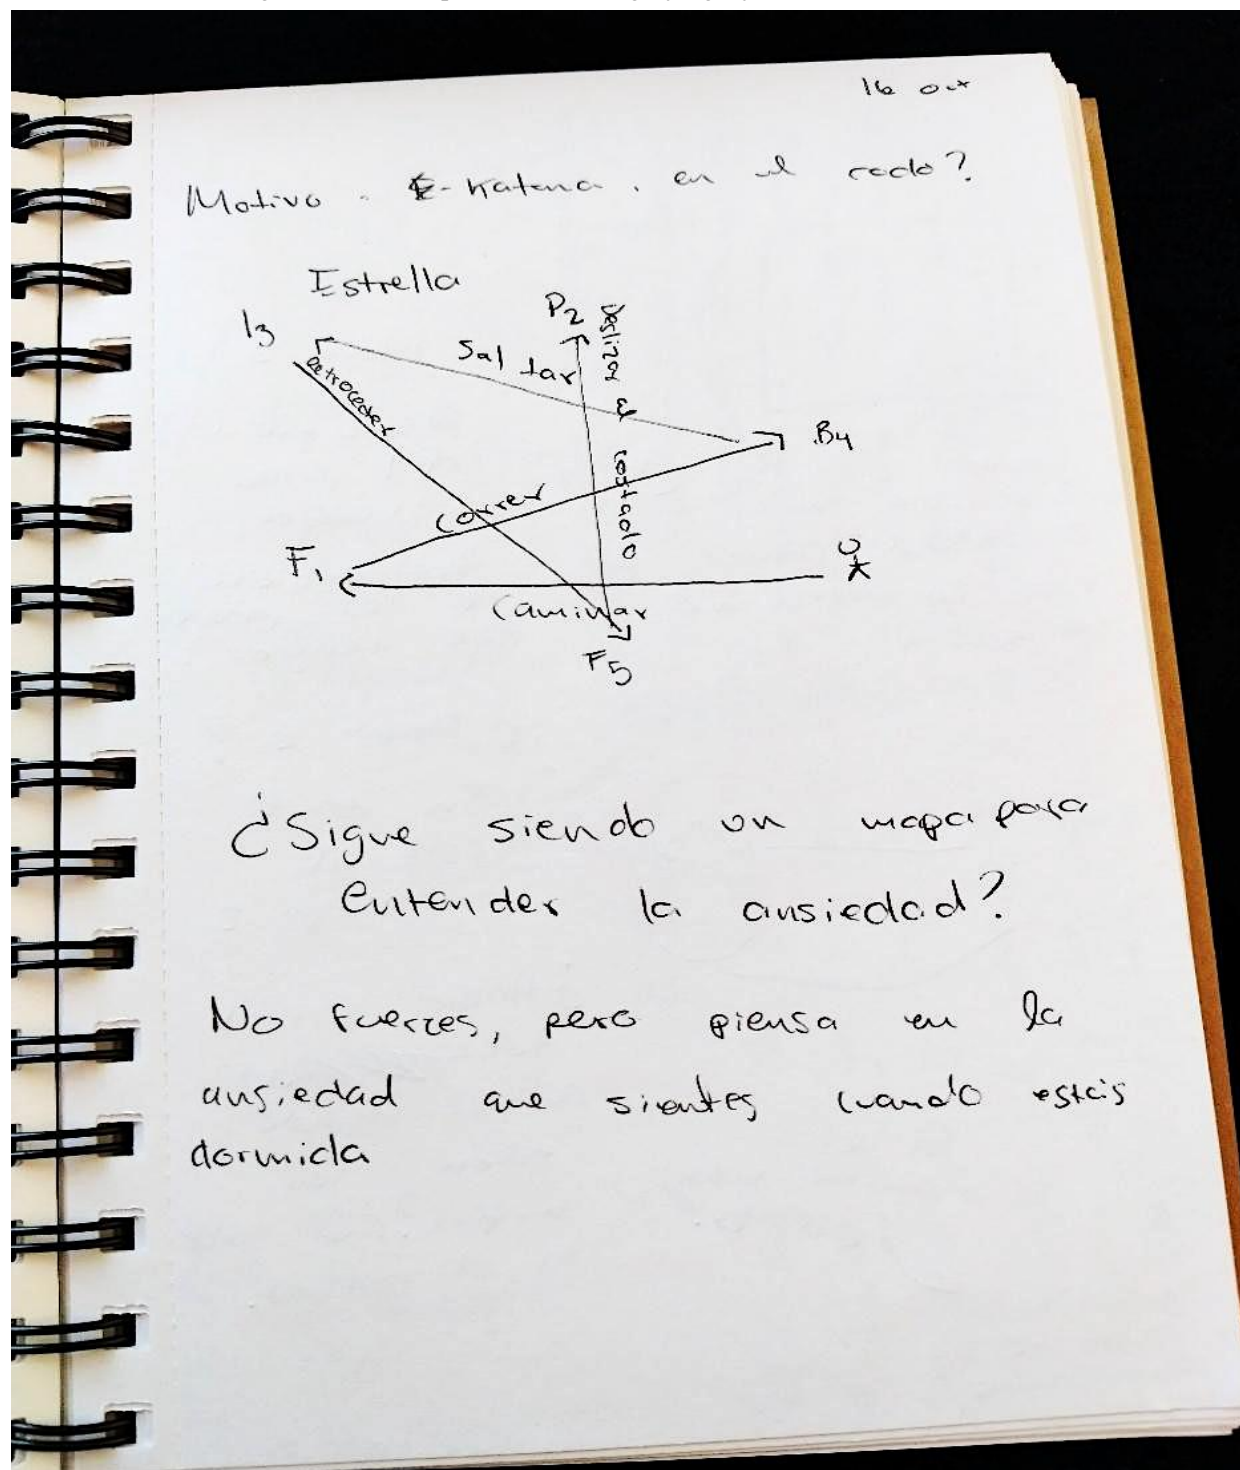 16 oct
Motivo - E-Katana. en el codo?
Estrella
P2
I3
Saltar
Deslizar al costado
retroceder
B4
Correr
F1
Caminar
F5
¿Sigue siendo un mapa para
entender la ansiedad?
No fuerces, pero piensa en la
ansiedad que sientes cuando estás
dormida